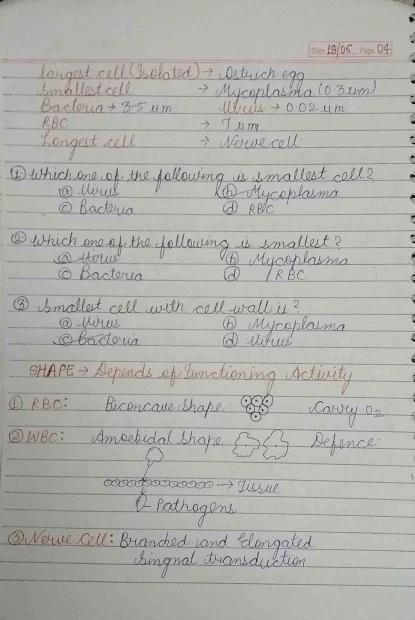 Date 18/05 Page 04
largest cell (Isolated) → Ostrich egg
Smallest cell → Mycoplasma (0.3 um)
Bacteria → 3-5 um Virus → 0.02 um
RBC → 7 um
Longest cell → Nerve cell
① Which one of the following is smallest cell?
ⓐ Virus ⓑ Mycoplasma
ⓒ Bacteria ⓓ RBC
② Which one of the following is smallest?
ⓐ Virus ⓑ Mycoplasma
ⓒ Bacteria ⓓ RBC
③ Smallest cell with cell wall is?
ⓐ Virus ⓑ Mycoplasma
ⓒ Bacteria ⓓ Virus
SHAPE → Depends of Functioning Activity
① RBC: Biconcave Shape Carry O2
② WBC: Amoebidal Shape Defence
→ Tissue
Pathogens
③ Nerve Cell: Branched and Elongated
Singnal transduction